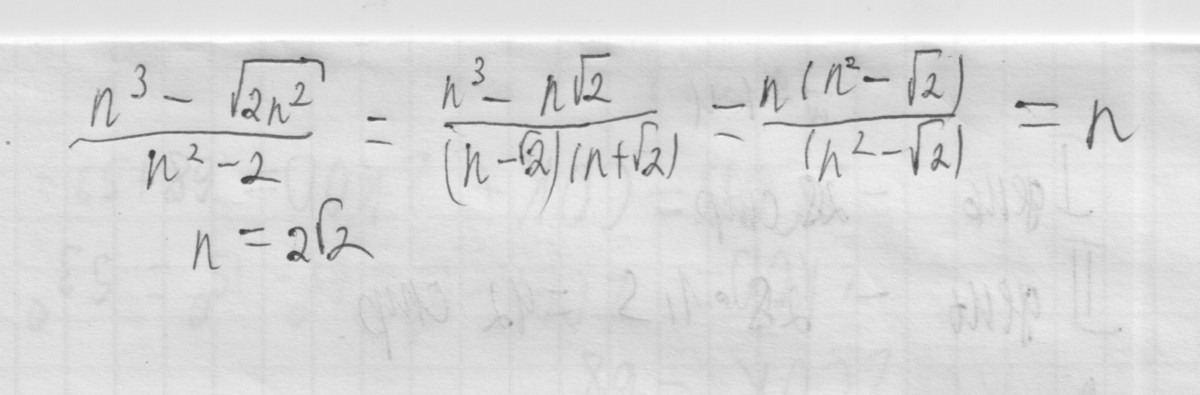 (n³ - √(2n²))/(n² - 2) = (n³ - n√2)/((n - √2)(n + √2)) = n(n² - √2)/(n² - √2) = n
n = 2√2